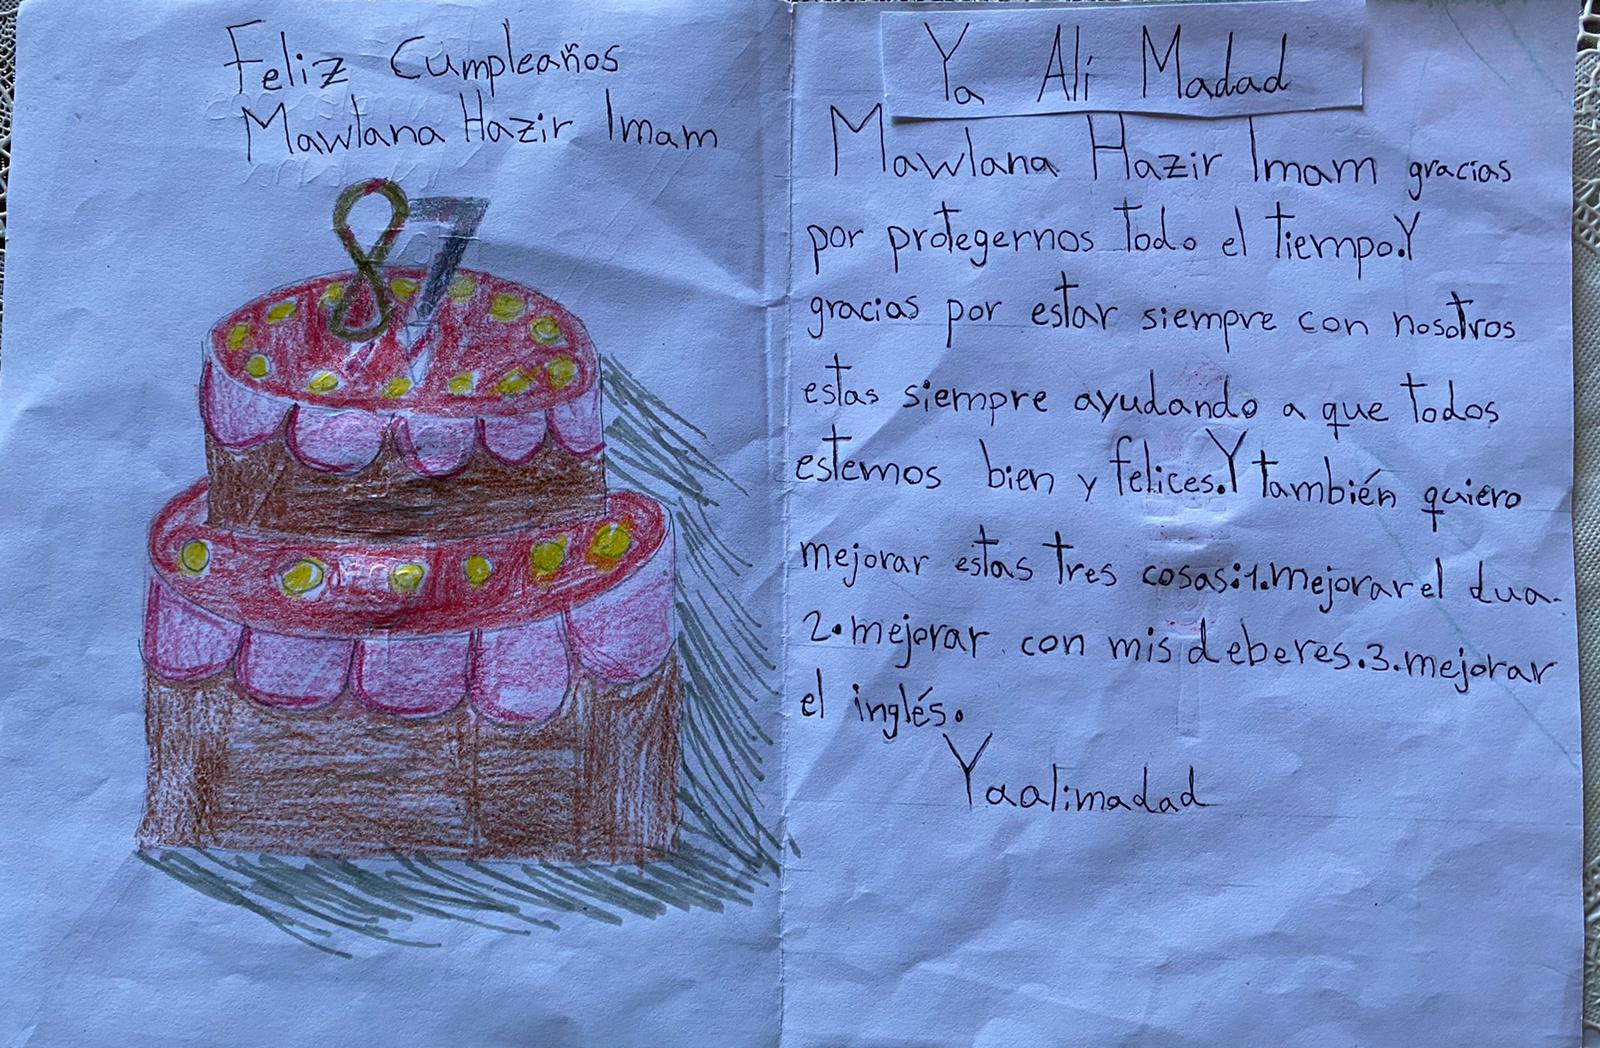 Feliz Cumpleaños
Mawlana Hazir Imam
87
Ya Ali Madad
Mawlana Hazir Imam gracias
por protegernos todo el tiempo.Y
gracias por estar siempre con nosotros
estas siempre ayudando a que todos
estemos bien y felices.Y también quiero
mejorar estas tres cosas:1.mejorar el dua.
2.mejorar con mis deberes.3.mejorar
el inglés.
Yaalimadad